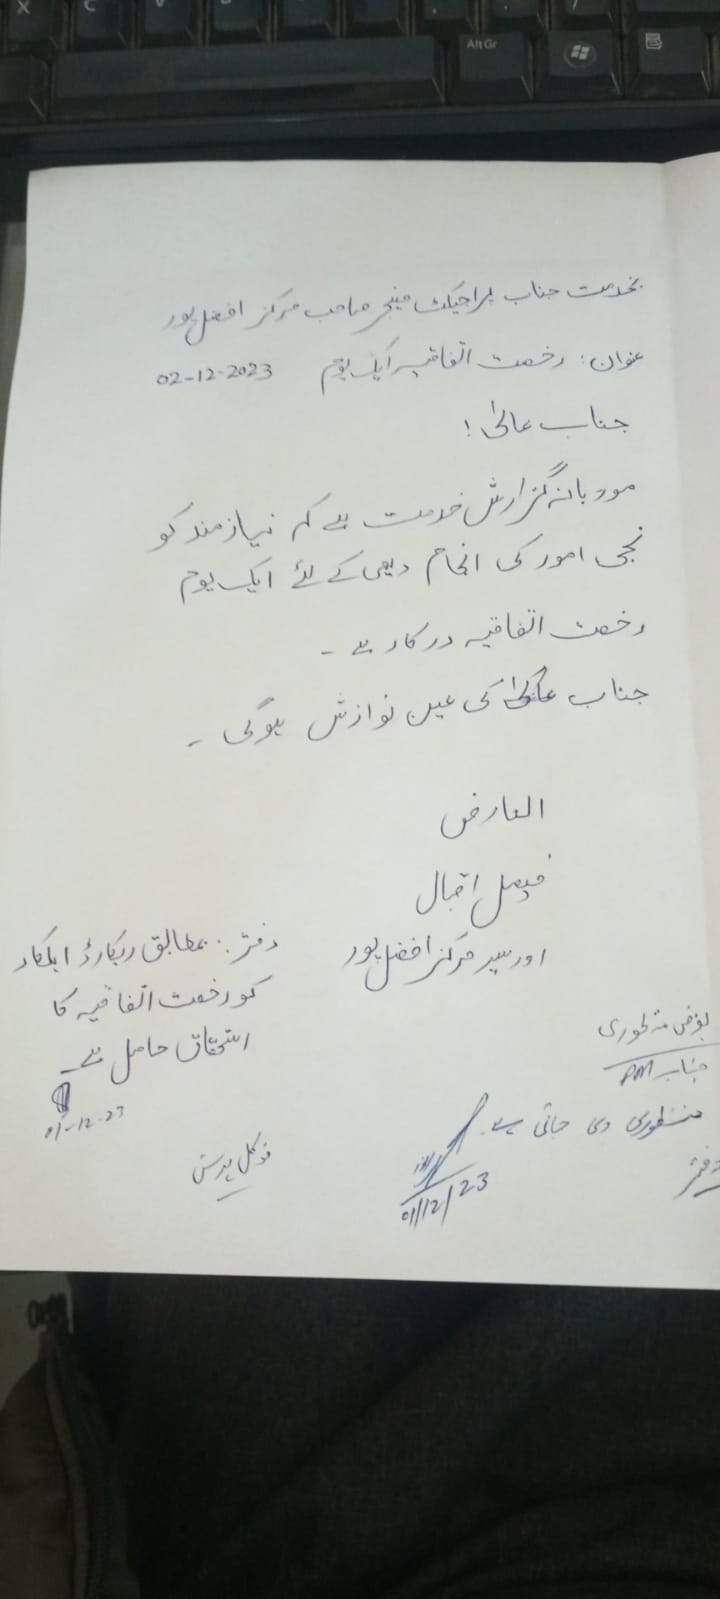 بخدمت جناب پراجیکٹ منیجر صاحب مرکز افضل پور
عنوان: رخصت اتفاقیہ ایک یوم 02-12-2023
جناب عالیٰ!
مودبانہ گزارش خدمت ہے کہ نیازمند کو
نجی امور کی انجام دہی کے لئے ایک یوم
رخصت اتفاقیہ درکار ہے۔
جناب عالیٰ کی عین نوازش ہوگی۔
العارض
فیصل اقبال
اورسیر مرکز افضل پور
دفتر: بمطابق ریکارڈ اہلکار
کو رخصت اتفاقیہ کا
استحقاق حاصل ہے۔
01-12-23
فوکل پرسن
بغرض منظوری
جناب PM
منظوری دی جاتی ہے۔
01/12/23
دفتر
X C V B Alt Gr